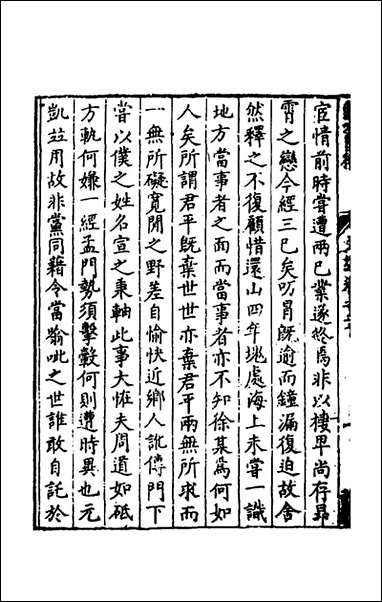 宦情前時嘗遭兩已業遂終焉非以棲卑尚存昂
霄之戀今經三已矣叨胃既逾而鐘漏復迫故舍
然釋之不復顧惜還山四年塊處海上未嘗一識
地方當事者之面而當事者亦不知徐某爲何如
人矣所謂君平既棄世世亦棄君平兩無所求而
一無所礙寬閒之野差自愉快近鄉人訛傳門下
嘗以僕之姓名宣之秉軸此事大恠夫周道如砥
方軌何嫌一經孟門勢須擊轂何則遭時異也元
凱並用故非黨同藉令當喻呲之世誰敢自託於